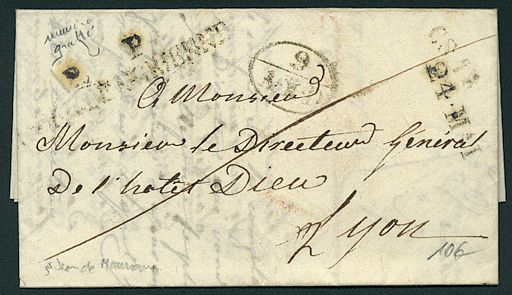 numéro
gratté
P P
9
24 MAI
A Monsieur
Monsieur le Directeur Général
De l'hotel Dieu
Lyon
St Jean de Maurienne
106